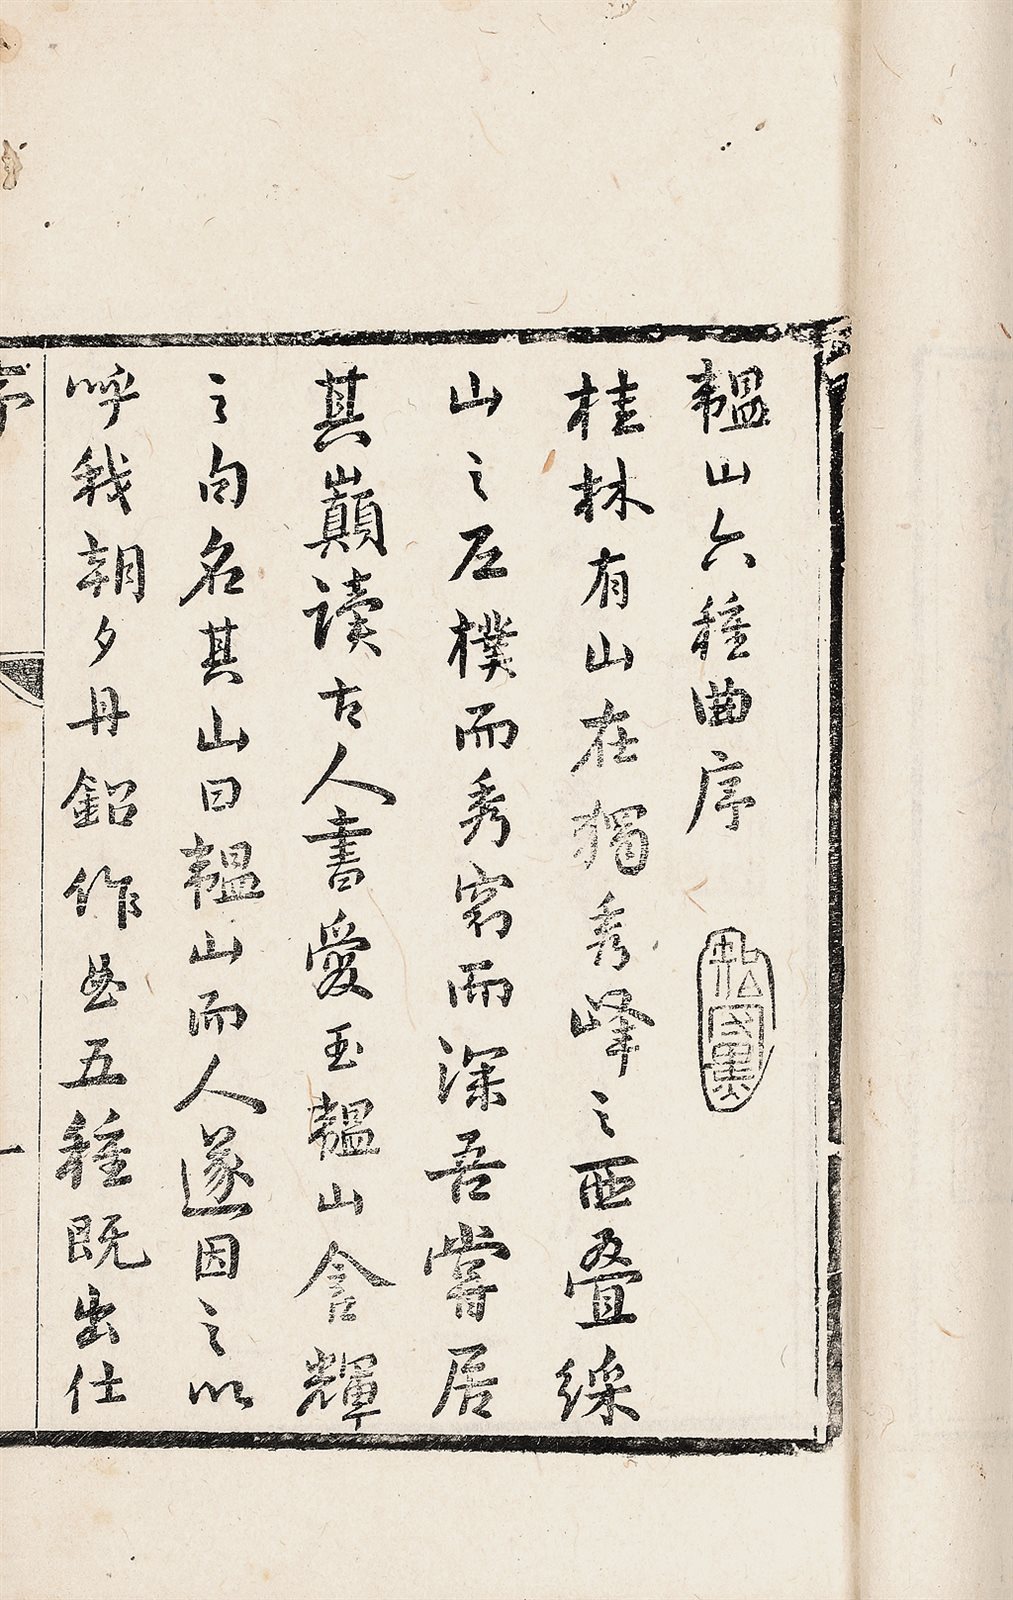 韞山六種曲序
桂林有山在獨秀峰之西叠綵
山之左樸而秀窈而深吾嘗居
其巔讀古人書愛玉韞山含輝
之句名其山曰韞山而人遂因之以
呼我朝夕丹鉛作曲五種既出仕
序
一